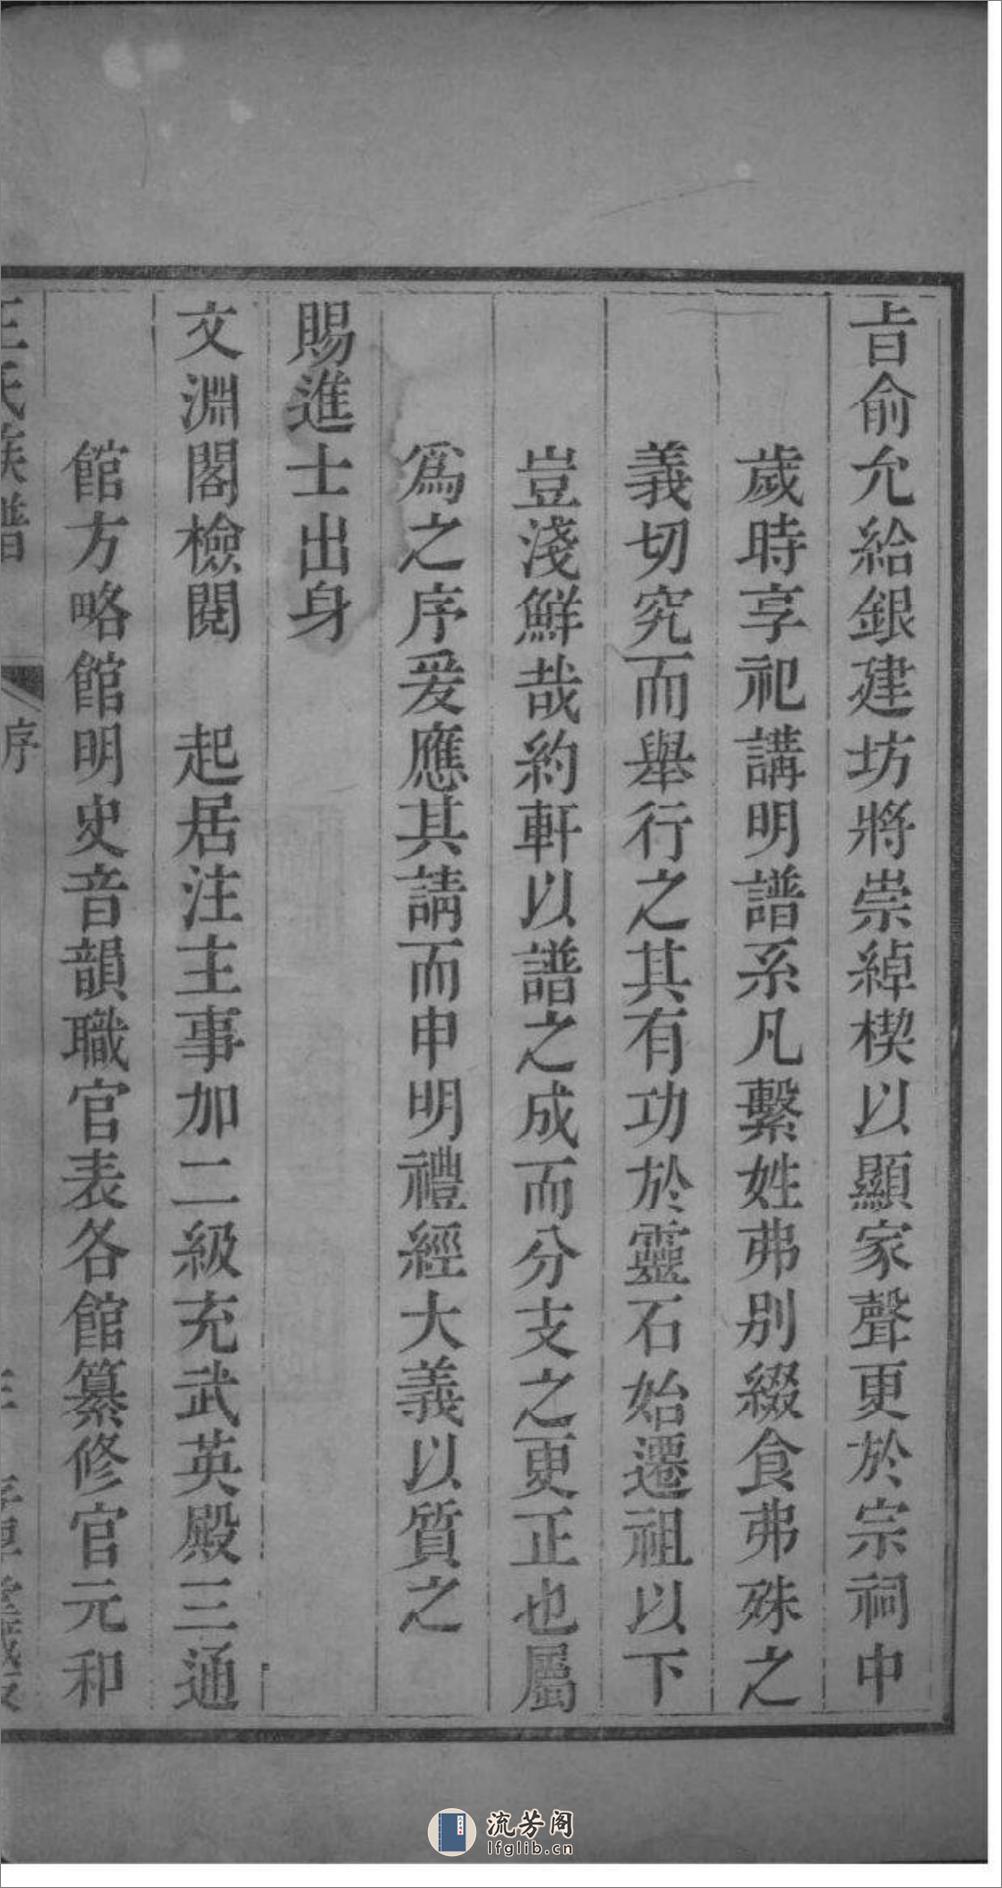 旨俞允給銀建坊將崇綽楔以顯家聲更於宗祠中
歲時享祀講明譜系凡繫姓弗別綴食弗殊之
義切究而舉行之其有功於靈石始遷祖以下
豈淺鮮哉約軒以譜之成而分支之更正也屬
爲之序爰應其請而申明禮經大義以質之
賜進士出身
文淵閣檢閱 起居注主事加二級充武英殿三通
館方略館明史音韻職官表各館纂修官元和
王氏族譜
序
流芳阁
lfglib.cn